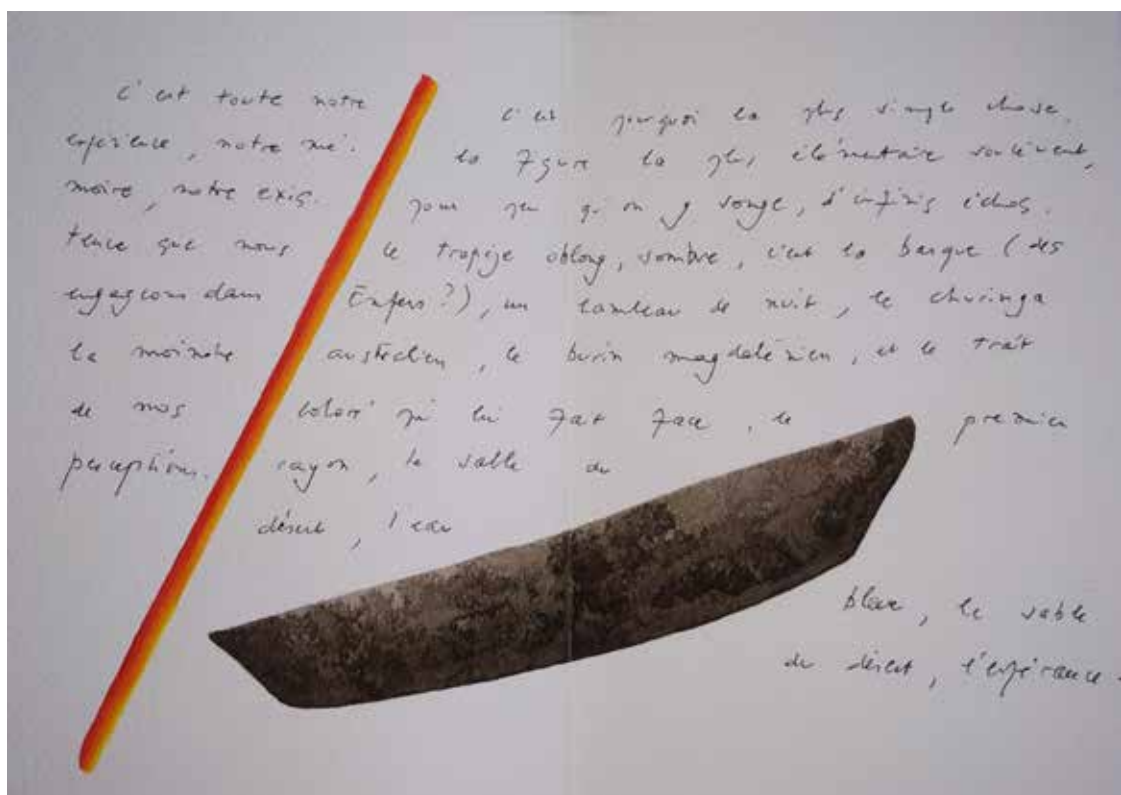 C'est toute notre
expérience, notre mé-
moire, notre exis-
tence que nous
engageons dans
la moindre
de nos
perceptions.
C'est pourquoi la plus simple chose,
la figure la plus élémentaire soulèvent,
pour peu qu'on y songe, d'infinis échos.
Le trapèze oblong, sombre, c'est la barque (des
Enfers?), un lambeau de nuit, le churinga
australien, le burin magdalénien, et le trait
coloré qui lui fait face, le premier
rayon, le sable du
désert, l'eau
bleue, le sable
du désert, l'espérance.